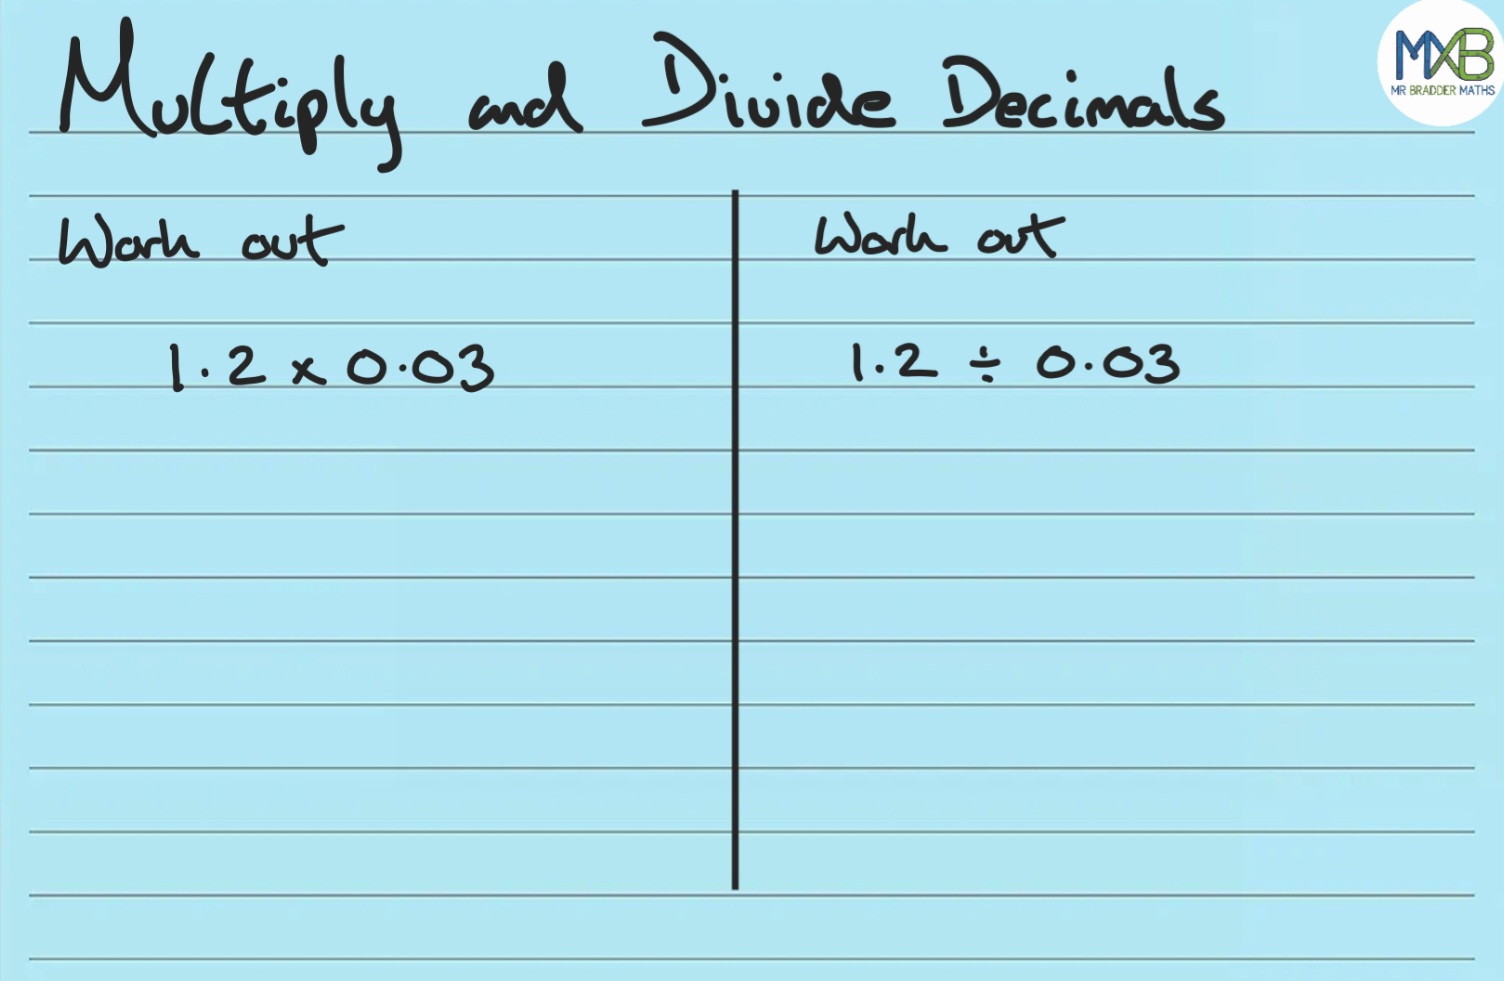 Multiply and Divide Decimals
MXB
MR BRADDER MATHS
Work out
1.2 x 0.03
Work out
1.2 ÷ 0.03